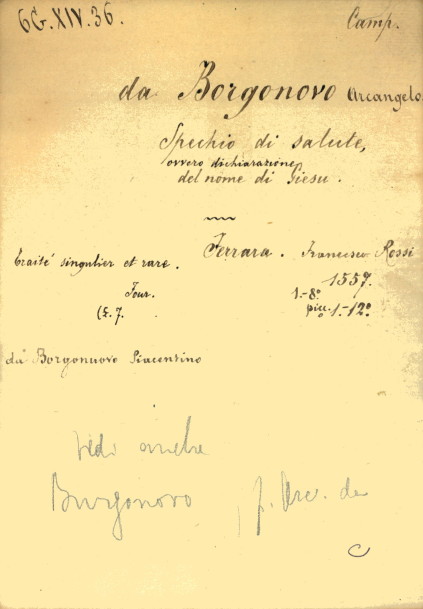 6G.XIV.36. Camp.
da Borgonovo Arcangelo.
Spechio di salute,
ovvero dichiarazione
del nome di Giesu.
Ferrara. Francesco Rossi
Traité singulier et rare.
1557.
Four. 1.-8º
(£. 7. picc. 1.-12º
da Borgonuovo Piacentino
Vedi anche
Burgonovo, f. Arc. da
C